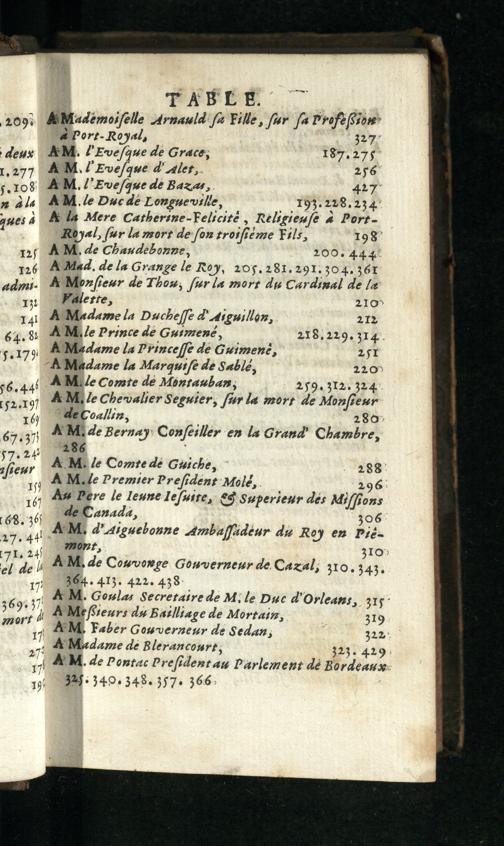 209.
deux
1.277
5.108
n à la
ques à
125
126
admi-
132
141
64.82
75.179
56.446
152.197
169
67.373
57.242
nsieur
159
167
168.36
27.44
171.24
del de la
17
369.37
mort d
17
27
17
19
TABLE.
A Mademoiſelle Arnauld ſa Fille, ſur ſa Profeßion
à Port-Royal, 327
A M. l'Eveſque de Grace, 187.275
A M. l'Eveſque d'Alet, 256
A M. l'Eveſque de Bazas, 427
A M. le Duc de Longueville, 193.228.234
A la Mere Catherine-Felicité, Religieuſe à Port-
Royal, ſur la mort de ſon troiſiéme Fils, 198
A M. de Chaudebonne, 200.444
A Mad. de la Grange le Roy, 205.281.291.304.361
A Monſieur de Thou, ſur la mort du Cardinal de la
Valette, 210
A Madame la Ducheſſe d'Aiguillon, 212
A M. le Prince de Guimené, 218.229.314
A Madame la Princeſſe de Guimené, 251
A Madame la Marquiſe de Sablé, 220
A M. le Comte de Montauban, 259.312.324
A M. le Chevalier Seguier, ſur la mort de Monſieur
de Coallin, 280
A M. de Bernay Conſeiller en la Grand' Chambre,
286
A M. le Comte de Guiche, 288
A M. le Premier Preſident Molé, 296
Au Pere le Ieune Ieſuite, & Superieur des Miſſions
de Canada, 306
A M. d'Aiguebonne Ambaſſadeur du Roy en Pié-
mont, 310
A M. de Couvonge Gouverneur de Cazal, 310.343.
364. 413. 422. 438
A M. Goulas Secretaire de M. le Duc d'Orleans, 315
A Meßieurs du Bailliage de Mortain, 319
A M. Faber Gouverneur de Sedan, 322
A Madame de Blerancourt, 323.429
A M. de Pontac Preſident au Parlement de Bordeaux
325. 340. 348. 357. 366